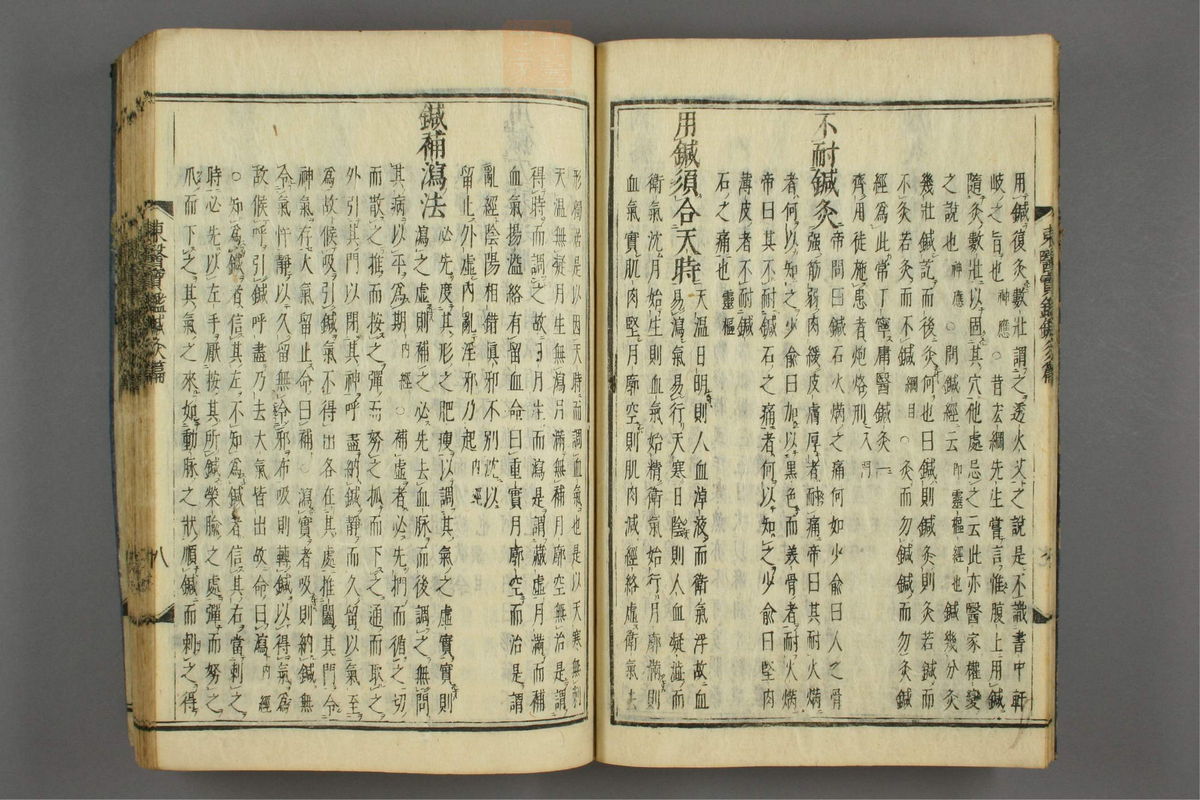 用鍼復灸數壯謂之透火艾之說是不識書中軒
岐之旨也神應○昔宏綱先生嘗言惟腹上用鍼
隨灸數壯以固其穴他處忌之云此亦醫家權變
之說也神應○問鍼經云即靈樞經也鍼幾分灸
幾壯鍼訖而後灸何也曰鍼則鍼灸則灸若鍼而
不灸若灸而不鍼綱目○灸而勿鍼鍼而勿灸鍼
經爲此常丁寧庸醫鍼灸一
齊用徒施患者炮烙刑入門
不耐鍼灸
帝問曰鍼石火焫之痛何如少俞曰人之骨
强筋弱肉緩皮膚厚者耐痛帝曰其耐火焫
者何以知之少俞曰加以黑色而美骨者耐火焫
帝曰其不耐鍼石之痛者何以知之少俞曰堅肉
薄皮者不耐鍼
石之痛也靈樞
用鍼須合天時
天溫日明則人血淖液而衛氣浮故血
易瀉氣易行天寒日陰則人血凝澁而
衛氣沈月始生則血氣始精衛氣始行月廓滿則
血氣實肌肉堅月廓空則肌肉減經絡虛衛氣去
形獨居是以因天時而調血氣也是以天寒無刺
天溫無凝月生無瀉月滿無補月廓空無治是謂
得時而調之故曰月生而瀉是謂藏虛月滿而補
血氣揚溢絡有留血命曰重實月廓空而治是謂
亂經陰陽相錯眞邪不別沈以
留止外虛內亂淫邪乃起內經
鍼補瀉法
必先度其形之肥瘦以調其氣之虛實實則
瀉之虛則補之必先去血脉而後調之無問
其病以平爲期內經○補虛者必先捫而循之切
而散之推而按之彈而努之抓而下之通而取之
外引其門以閉其神呼盡納鍼靜而久留以氣至
爲故候吸引鍼氣不得出各在其處推闔其門令
神氣存大氣留止命曰補○瀉實者吸則納鍼無
令氣忤靜以久留無令邪布吸則轉鍼以得氣爲
故候呼引鍼呼盡乃去大氣皆出故命曰瀉內經
○知爲鍼者信其左不知爲鍼者信其右當刺之
時必先以左手厭按其所鍼榮腧之處彈而努之
爪而下之其氣之來如動脉之狀順鍼而刺之得
東醫寶鑑鍼灸篇
八
東醫寶鑑鍼灸篇